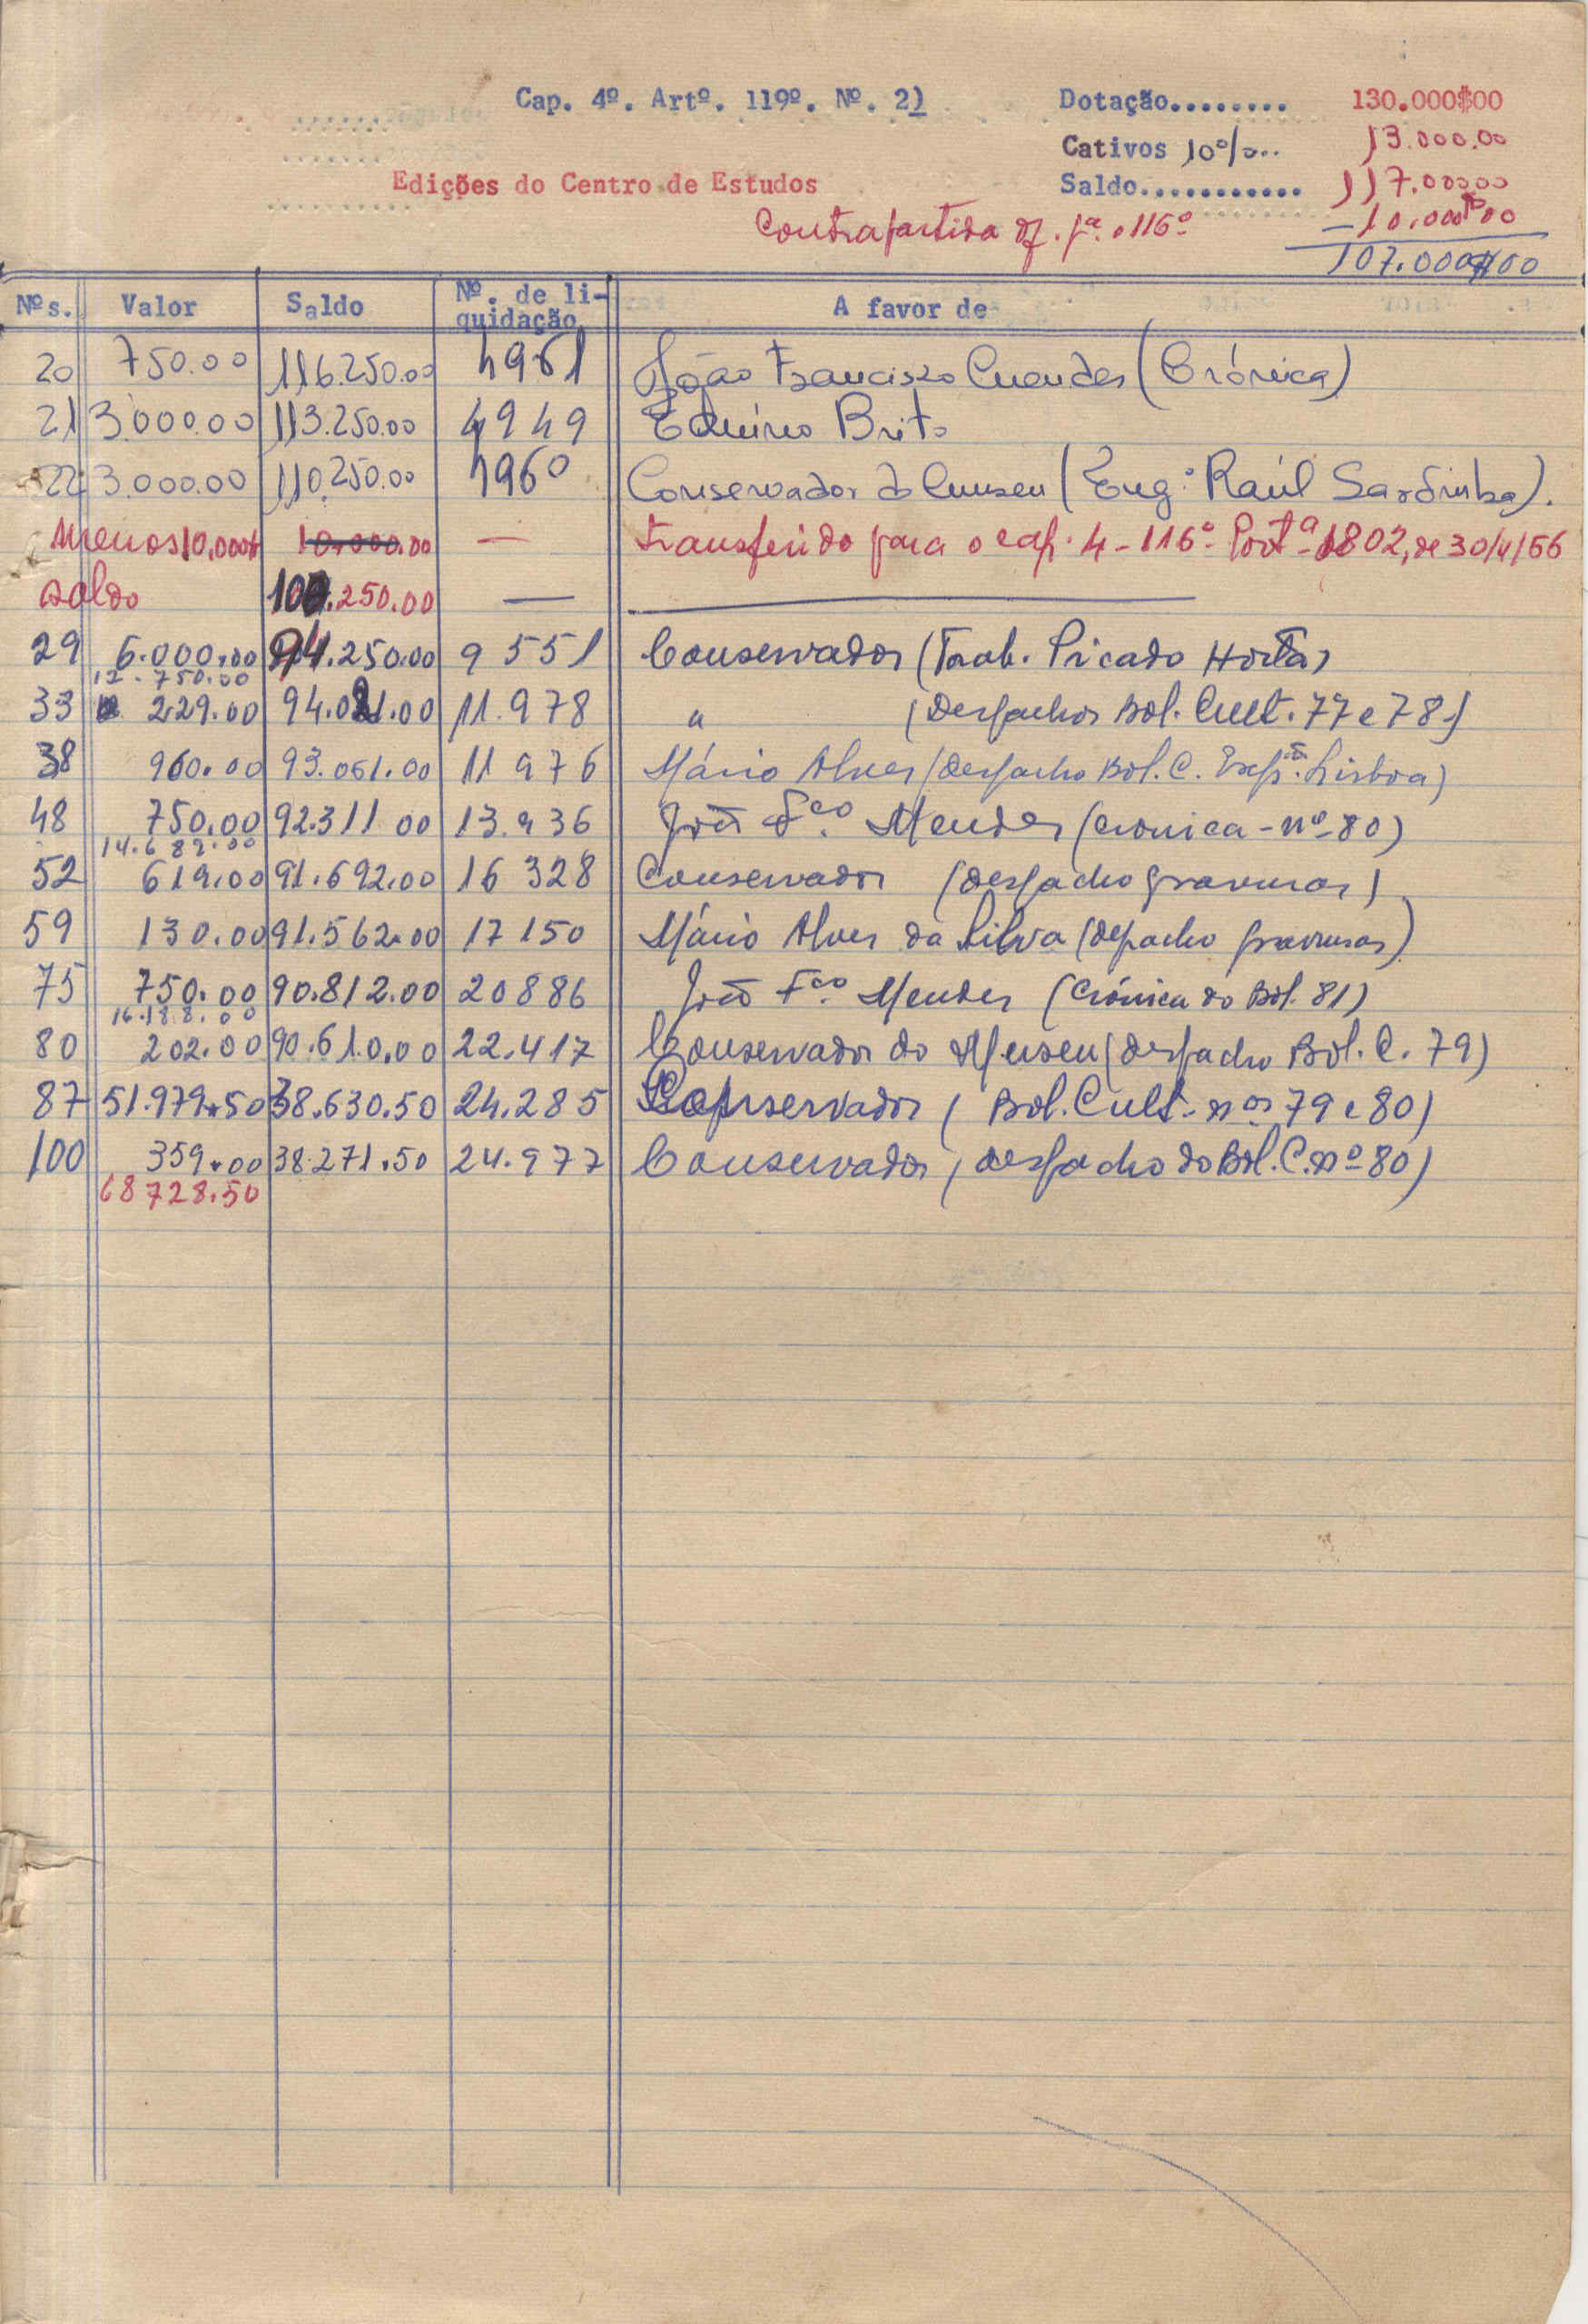 Cap. 4º. Artº. 119º. Nº. 2) Dotação........ 130.000$00
Cativos 10%.. 13.000.00
Edições do Centro de Estudos Saldo........... 117.000.00
Contrapartida -10.000$00
107.000$00
Nºs. Valor Saldo Nº. de li-quidação A favor de
20 750.00 116.250.00 4961 João Francisco Mendes (Crónica)
21 3.000.00 113.250.00 4949 Eduíno Brito
22 3.000.00 110.250.00 4960 Conservador do Museu (Eng.º Raúl Sardinha).
Menos 10.000$ 10.000.00 — transferido para o cap. 4-116º- Portª 1802, de 30/4/56
saldo 100.250.00 —
29 6.000.00 94.250.00 9551 Conservador (Trab. Picado Horta)
12.750.00
33 229.00 94.021.00 11.978 " (Despachos Bol. Cult. 77 e 78)
38 960.00 93.061.00 11976 Mário Alves (despacho Bol. C. Lisboa)
48 750.00 92.311.00 13.936 João Fco. Mendes (cronica - nº 80)
14.682.00
52 619.00 91.692.00 16328 Conservador (despacho gravuras)
59 130.00 91.562.00 17150 Mário Alves da Silva (depacho gravuras)
75 750.00 90.812.00 20886 João Fco. Mendes (Crónica do Bol. 81)
16.188.00
80 202.00 90.610.00 22.417 Conservador do Museu (despacho Bol. C. 79)
87 51.979.50 38.630.50 24.285 Conservador (Bol. Cult. nos 79 e 80)
100 359.00 38.271.50 24.977 Conservador (despacho do Bol. C. nº 80)
68728.50